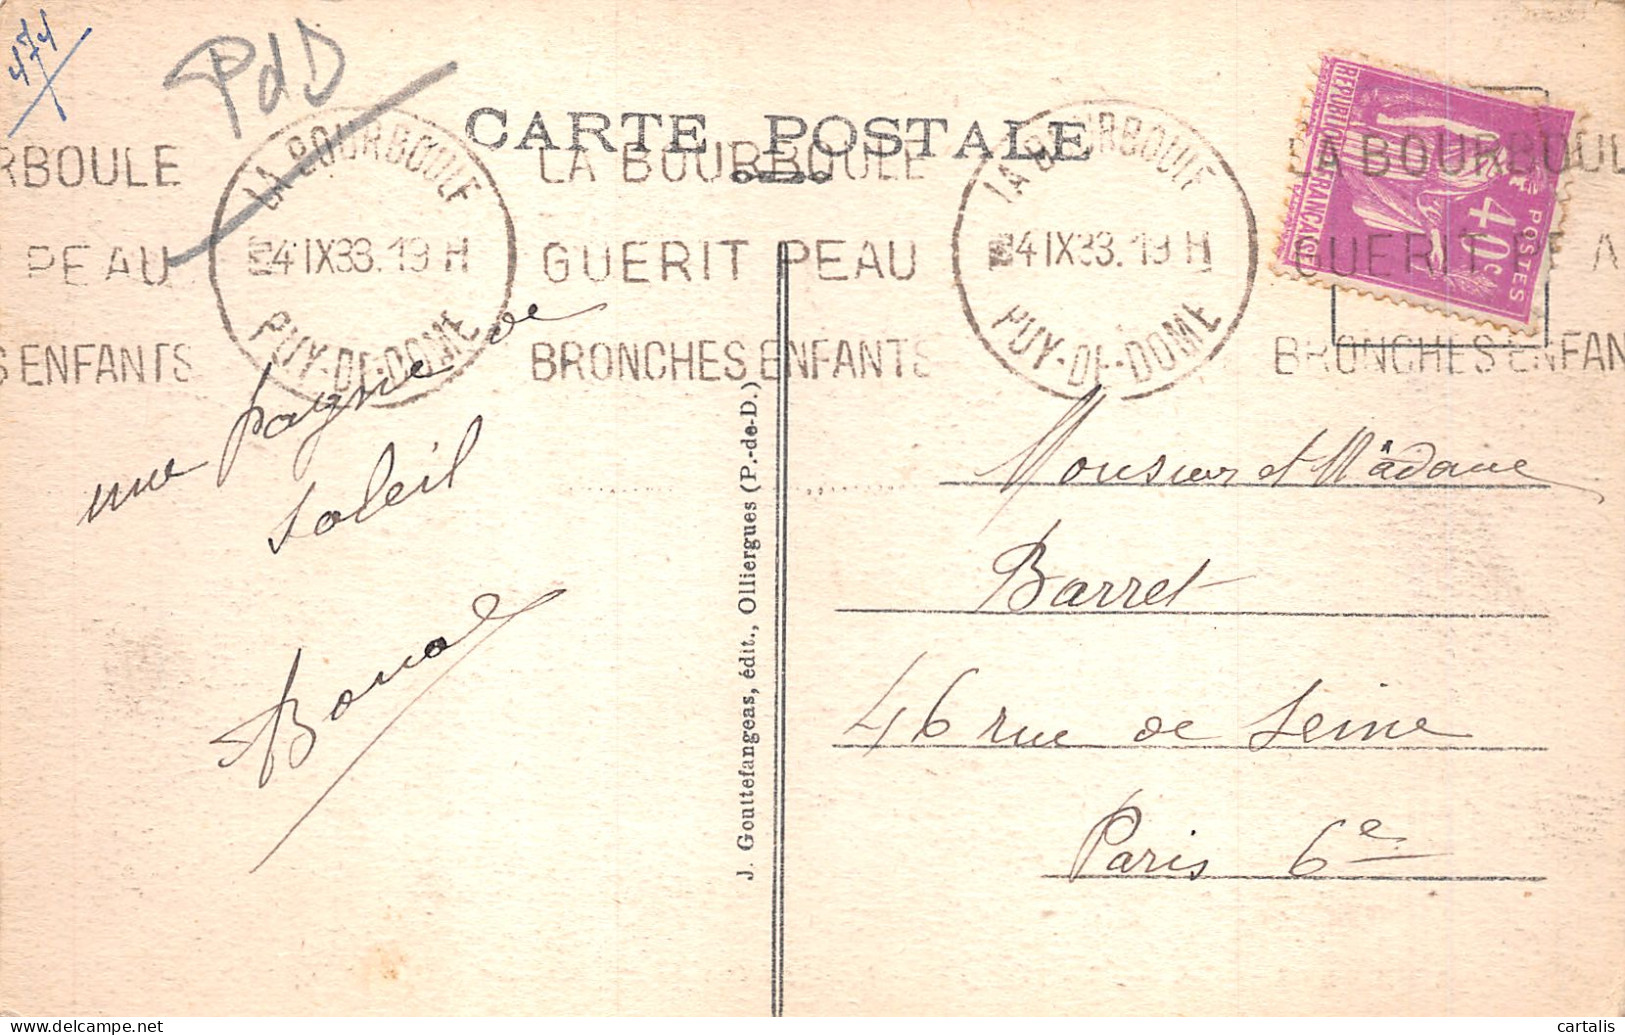 474
PdD
CARTE POSTALE
RBOULE
PEAU
S ENFANTS
LA BOURBOULE
4 IX 33. 19 H
PUY-DE-DOME
LA BOURBOULE
GUERIT PEAU
BRONCHES ENFANTS
LA BOURBOULE
4 IX 33. 19 H
PUY-DE-DOME
REPUBLIQUE FRANÇAISE
POSTES
40c
LA BOURBOUL
GUERIT PEA
BRONCHES ENFAN
une
de
soleil
J. Gouttefangeas, édit., Olliergues (P.-de-D.)
Monsieur et Madame
Barret
46 rue de Seine
Paris 6e
cartalis